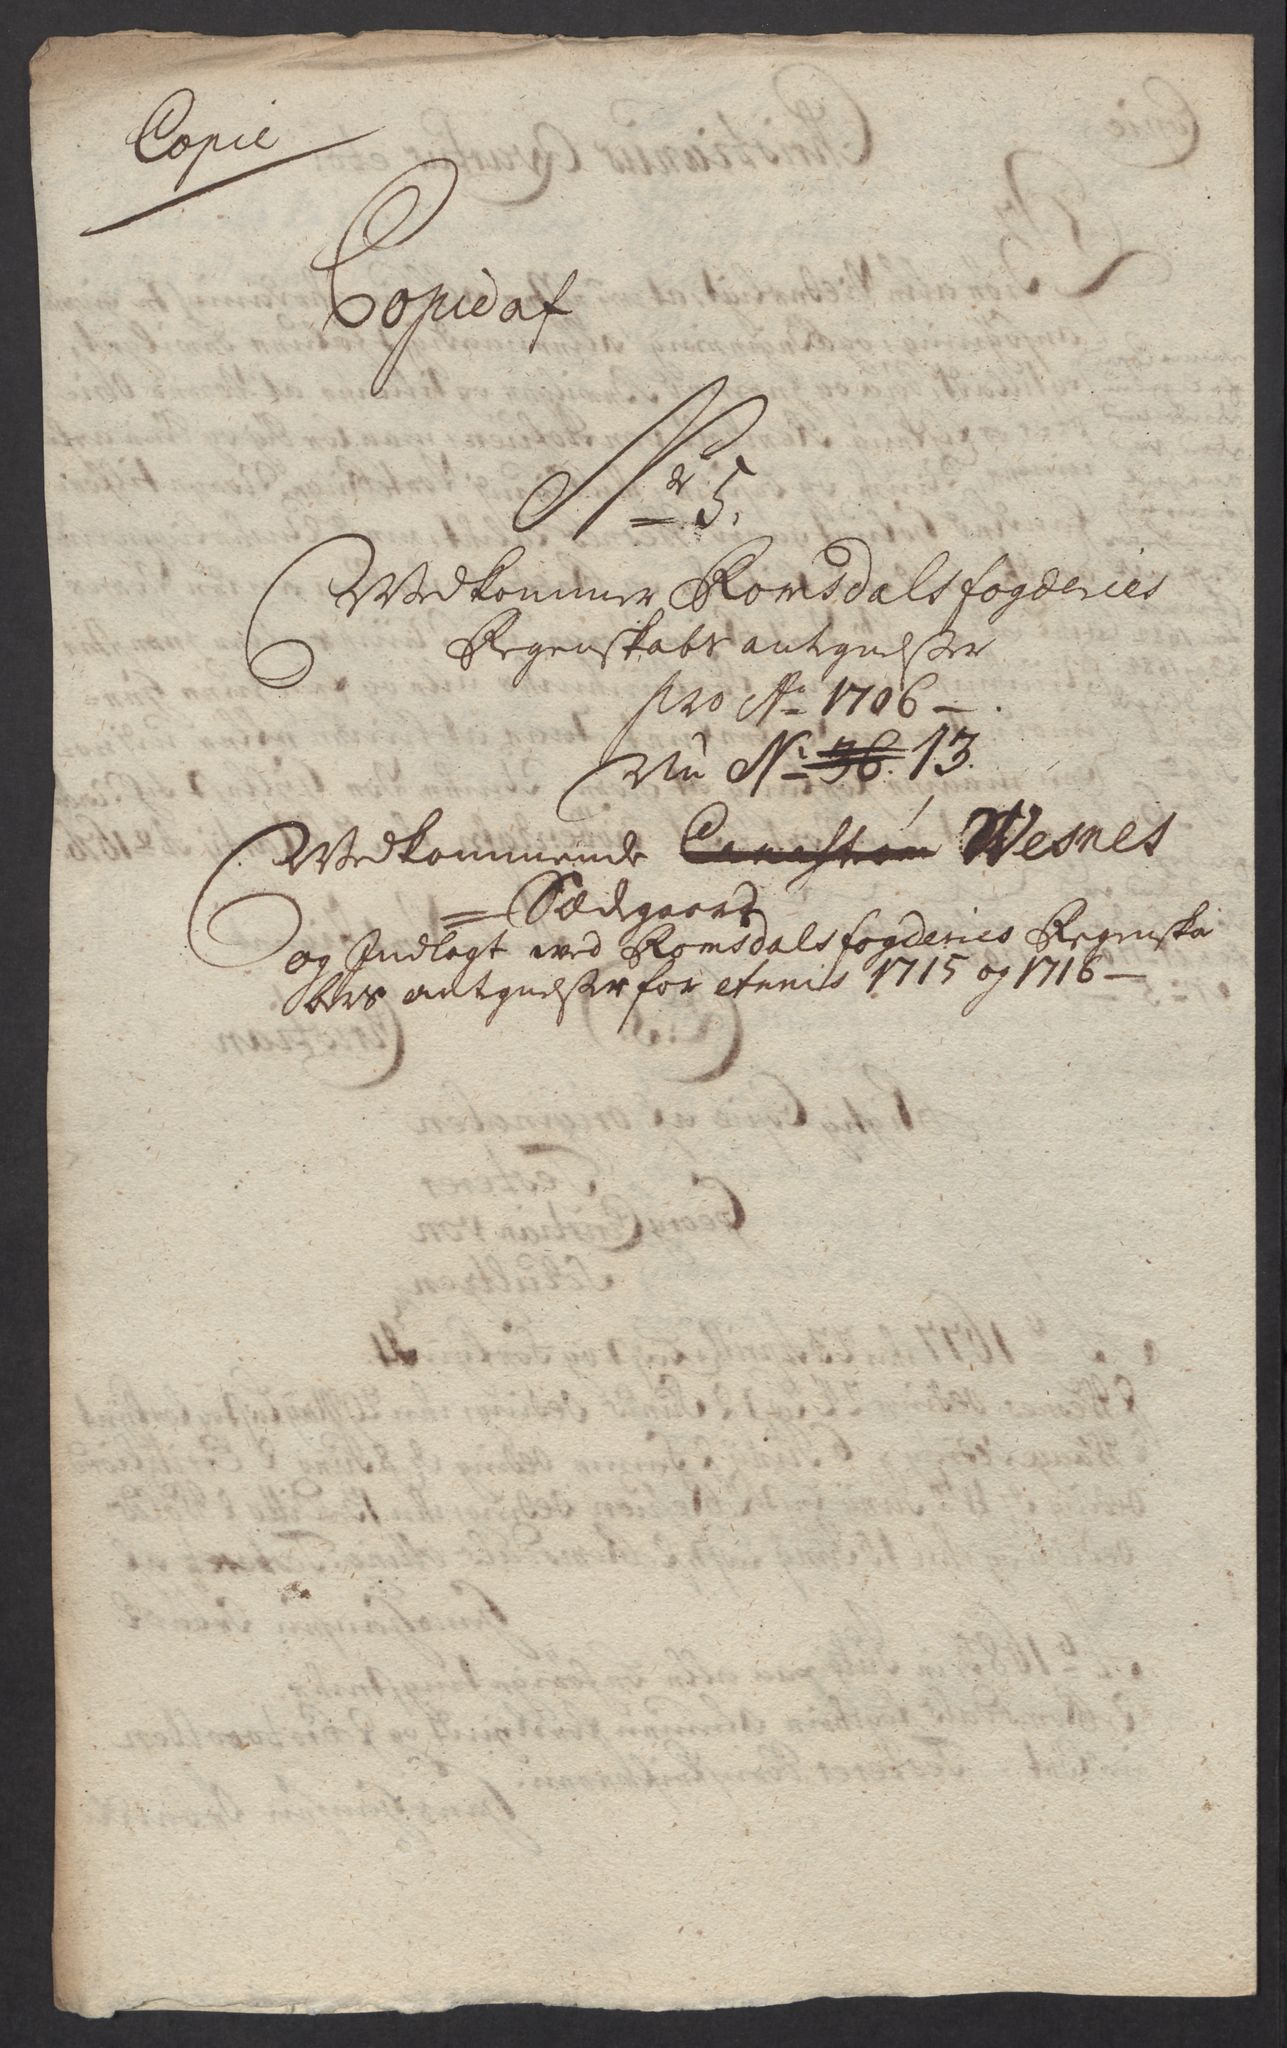 Copie
Copie af
Nr 5.
Wedkommer Romsdals fogderies
Regenskabs antegnelser
pro Ao 1706 —.
Nu No 36. 13.
Wedkommende Wesnes
= Sædegaard
og Indlagt ved Romsdals fogderies Regenska
bers antegnelser for Annis 1715 og 1716 —